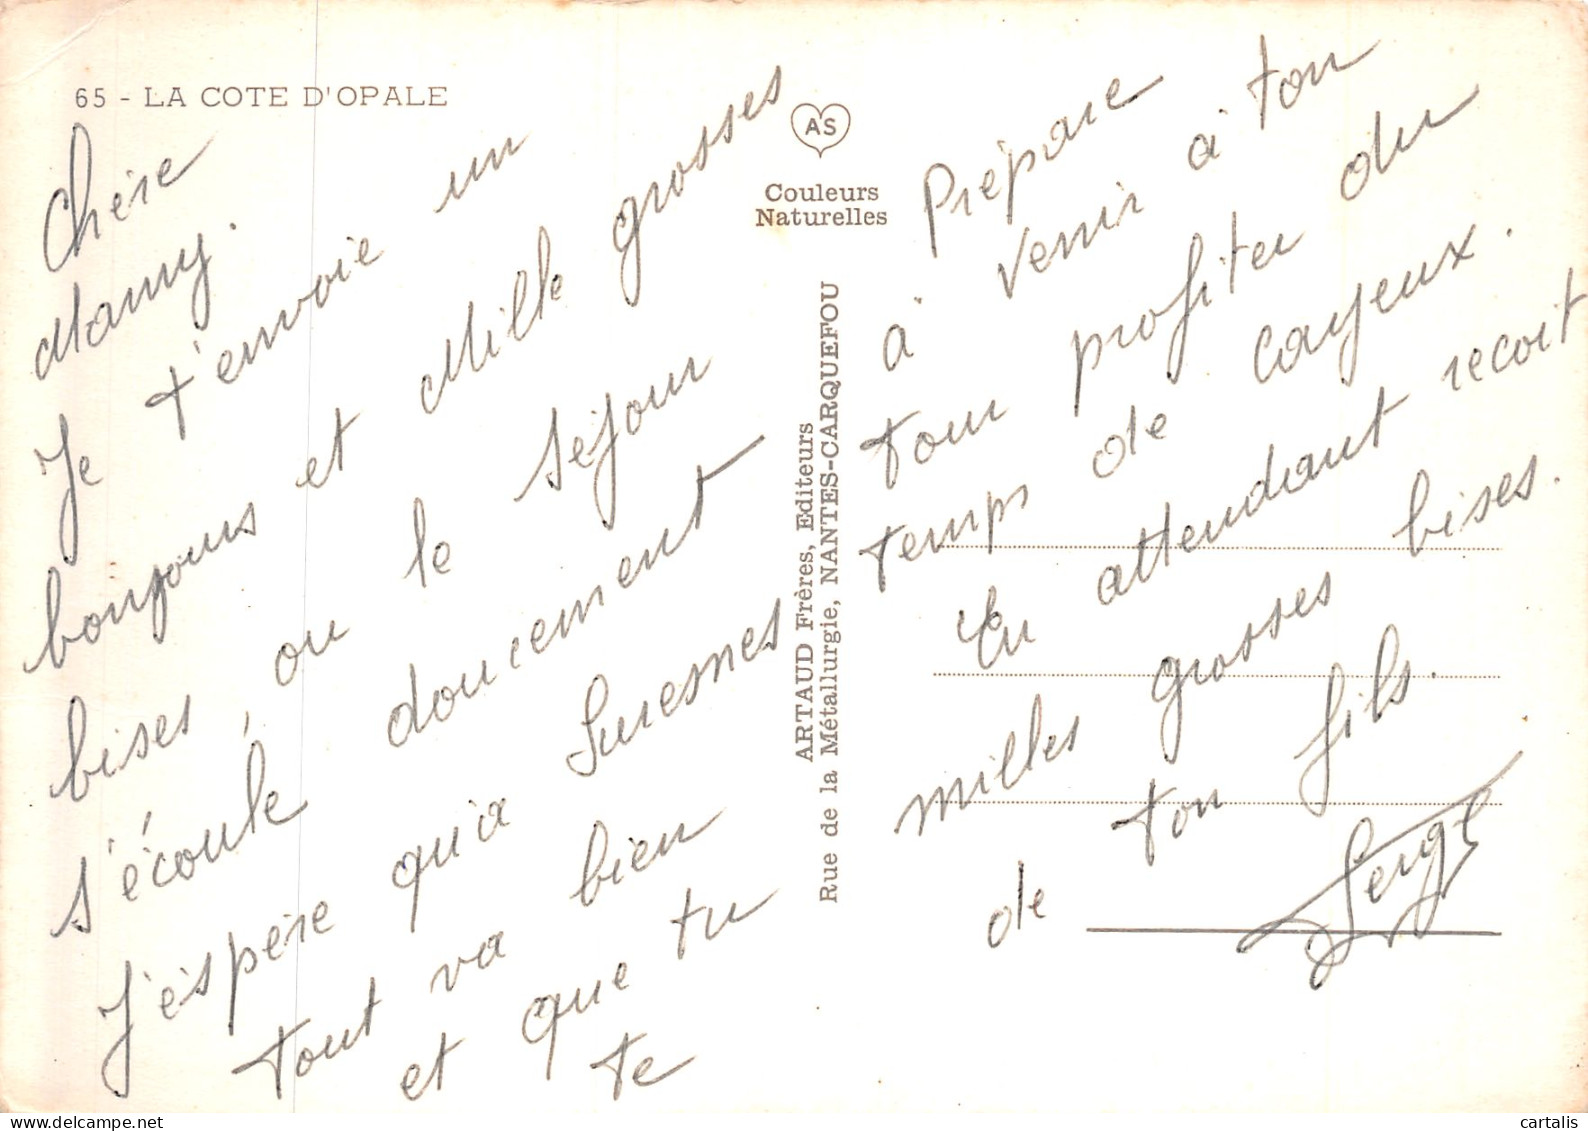 65 - LA COTE D'OPALE
Chère
Mamy.
Je t'envoie un
bonjours et Mille grosses
bises, ou le séjour
s'écoule doucement
J'espère qu'a Suresnes
tout va bien
et que tu
te
AS
Couleurs
Naturelles
ARTAUD Frères, Editeurs
Rue de la Métallurgie, NANTES-CARQUEFOU
Prépare
à venir à ton
tour profiter du
temps de cayeux.
En attendant recoit
milles grosses bises.
de ton fils.
Serge
cartalis